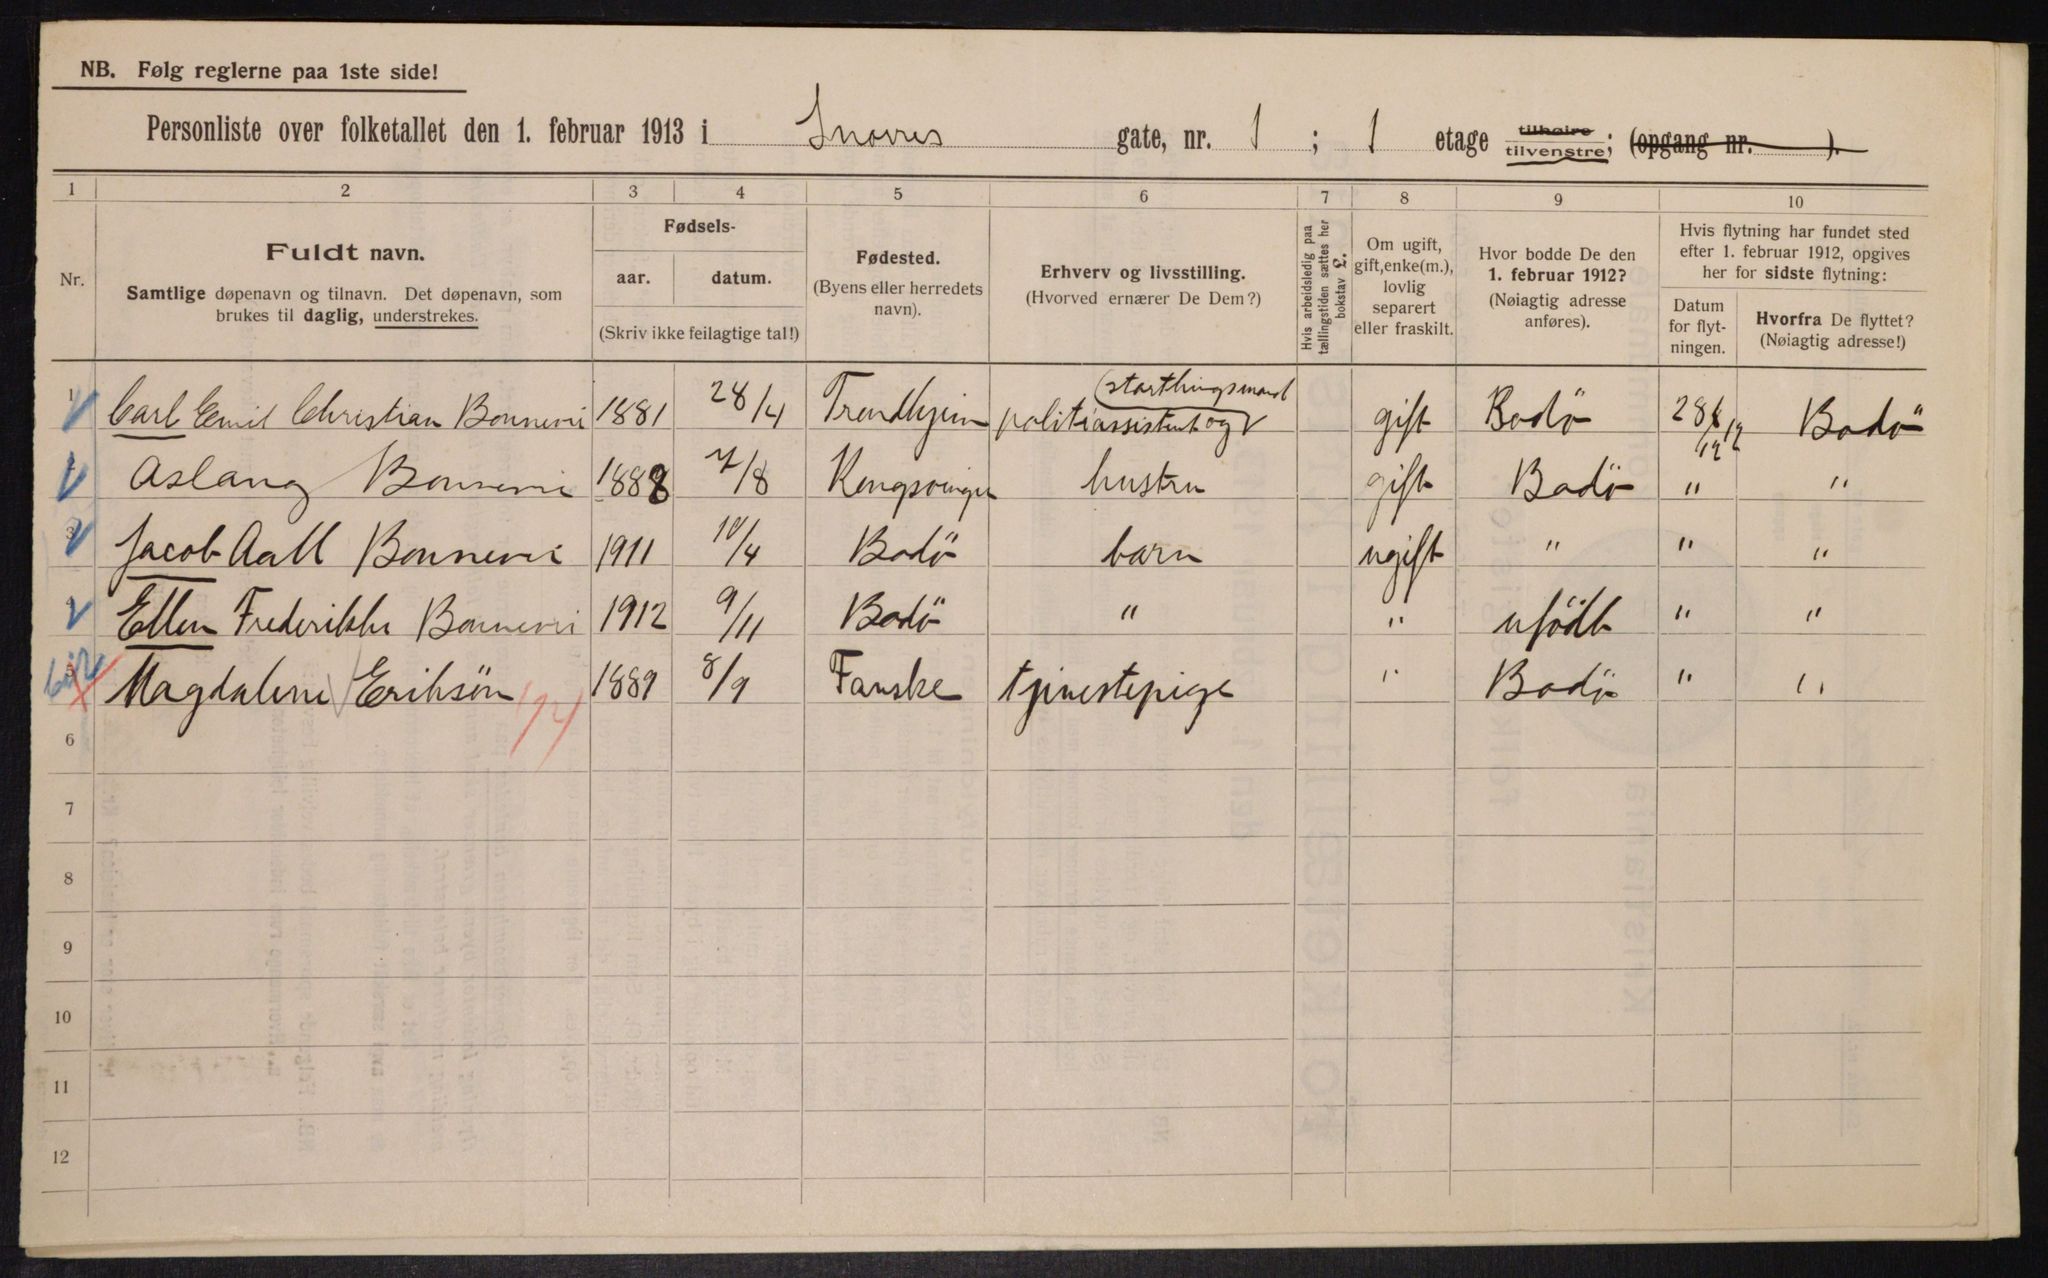 NB. Følg reglerne paa 1ste side!
Personliste over folketallet den 1. februar 1913 i Snorres gate, nr. 1 ; 1 etage tilhøire tilvenstre; (opgang nr. ).
1 2 3 4 5 6 7 8 9 10
Nr.
Fuldt navn.
Samtlige døpenavn og tilnavn. Det døpenavn, som
brukes til daglig, understrekes.
Fødsels-
aar. datum.
(Skriv ikke feilagtige tal!)
Fødested.
(Byens eller herredets
navn).
Erhverv og livsstilling.
(Hvorved ernærer De Dem?)
Hvis arbeidsledig paa
tællingstiden sættes her
bokstav L.
Om ugift,
gift, enke(m.),
lovlig
separert
eller fraskilt.
Hvor bodde De den
1. februar 1912?
(Nøiagtig adresse
anføres).
Hvis flytning har fundet sted
efter 1. februar 1912, opgives
her for sidste flytning:
Datum
for flyt-
ningen.
Hvorfra De flyttet?
(Nøiagtig adresse!)
1 Carl Emil Christian Bonnevie 1881 28/4 Trondhjem politiassistent og stortingsmand gift Bodö 28/12 12 Bodö
Aslaug Bonnevie 1888 7/8 Kongsvinger hustru gift Bodö " "
3 Jacob Aall Bonnevie 1911 10/4 Bodö barn ugift " " "
Ellen Frederikke Bonnevie 1912 9/11 Bodö " " ufödt " "
5 Magdalene Eriksön 1889 8/9 Fauske tjenestepige " Bodö " "
6
7
8
9
10
11
12